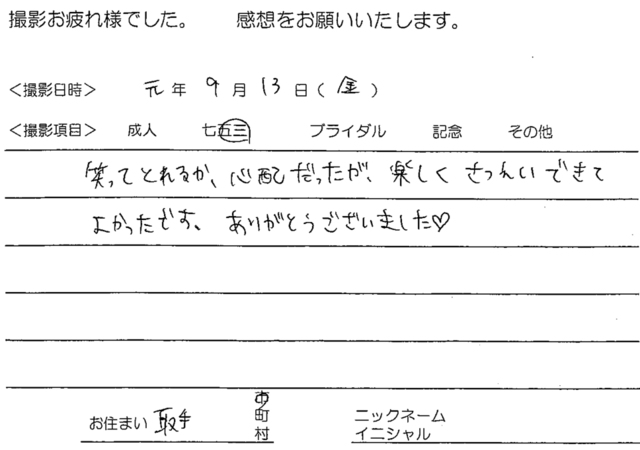 撮影お疲れ様でした。 感想をお願いいたします。
<撮影日時> 元年 9月 13日(金)
<撮影項目> 成人 七五三 ブライダル 記念 その他
笑ってとれるか、心配だったが、楽しく さつえいできて
よかったです。 ありがとうございました♡
お住まい 取手 市 町 村 ニックネーム
イニシャル